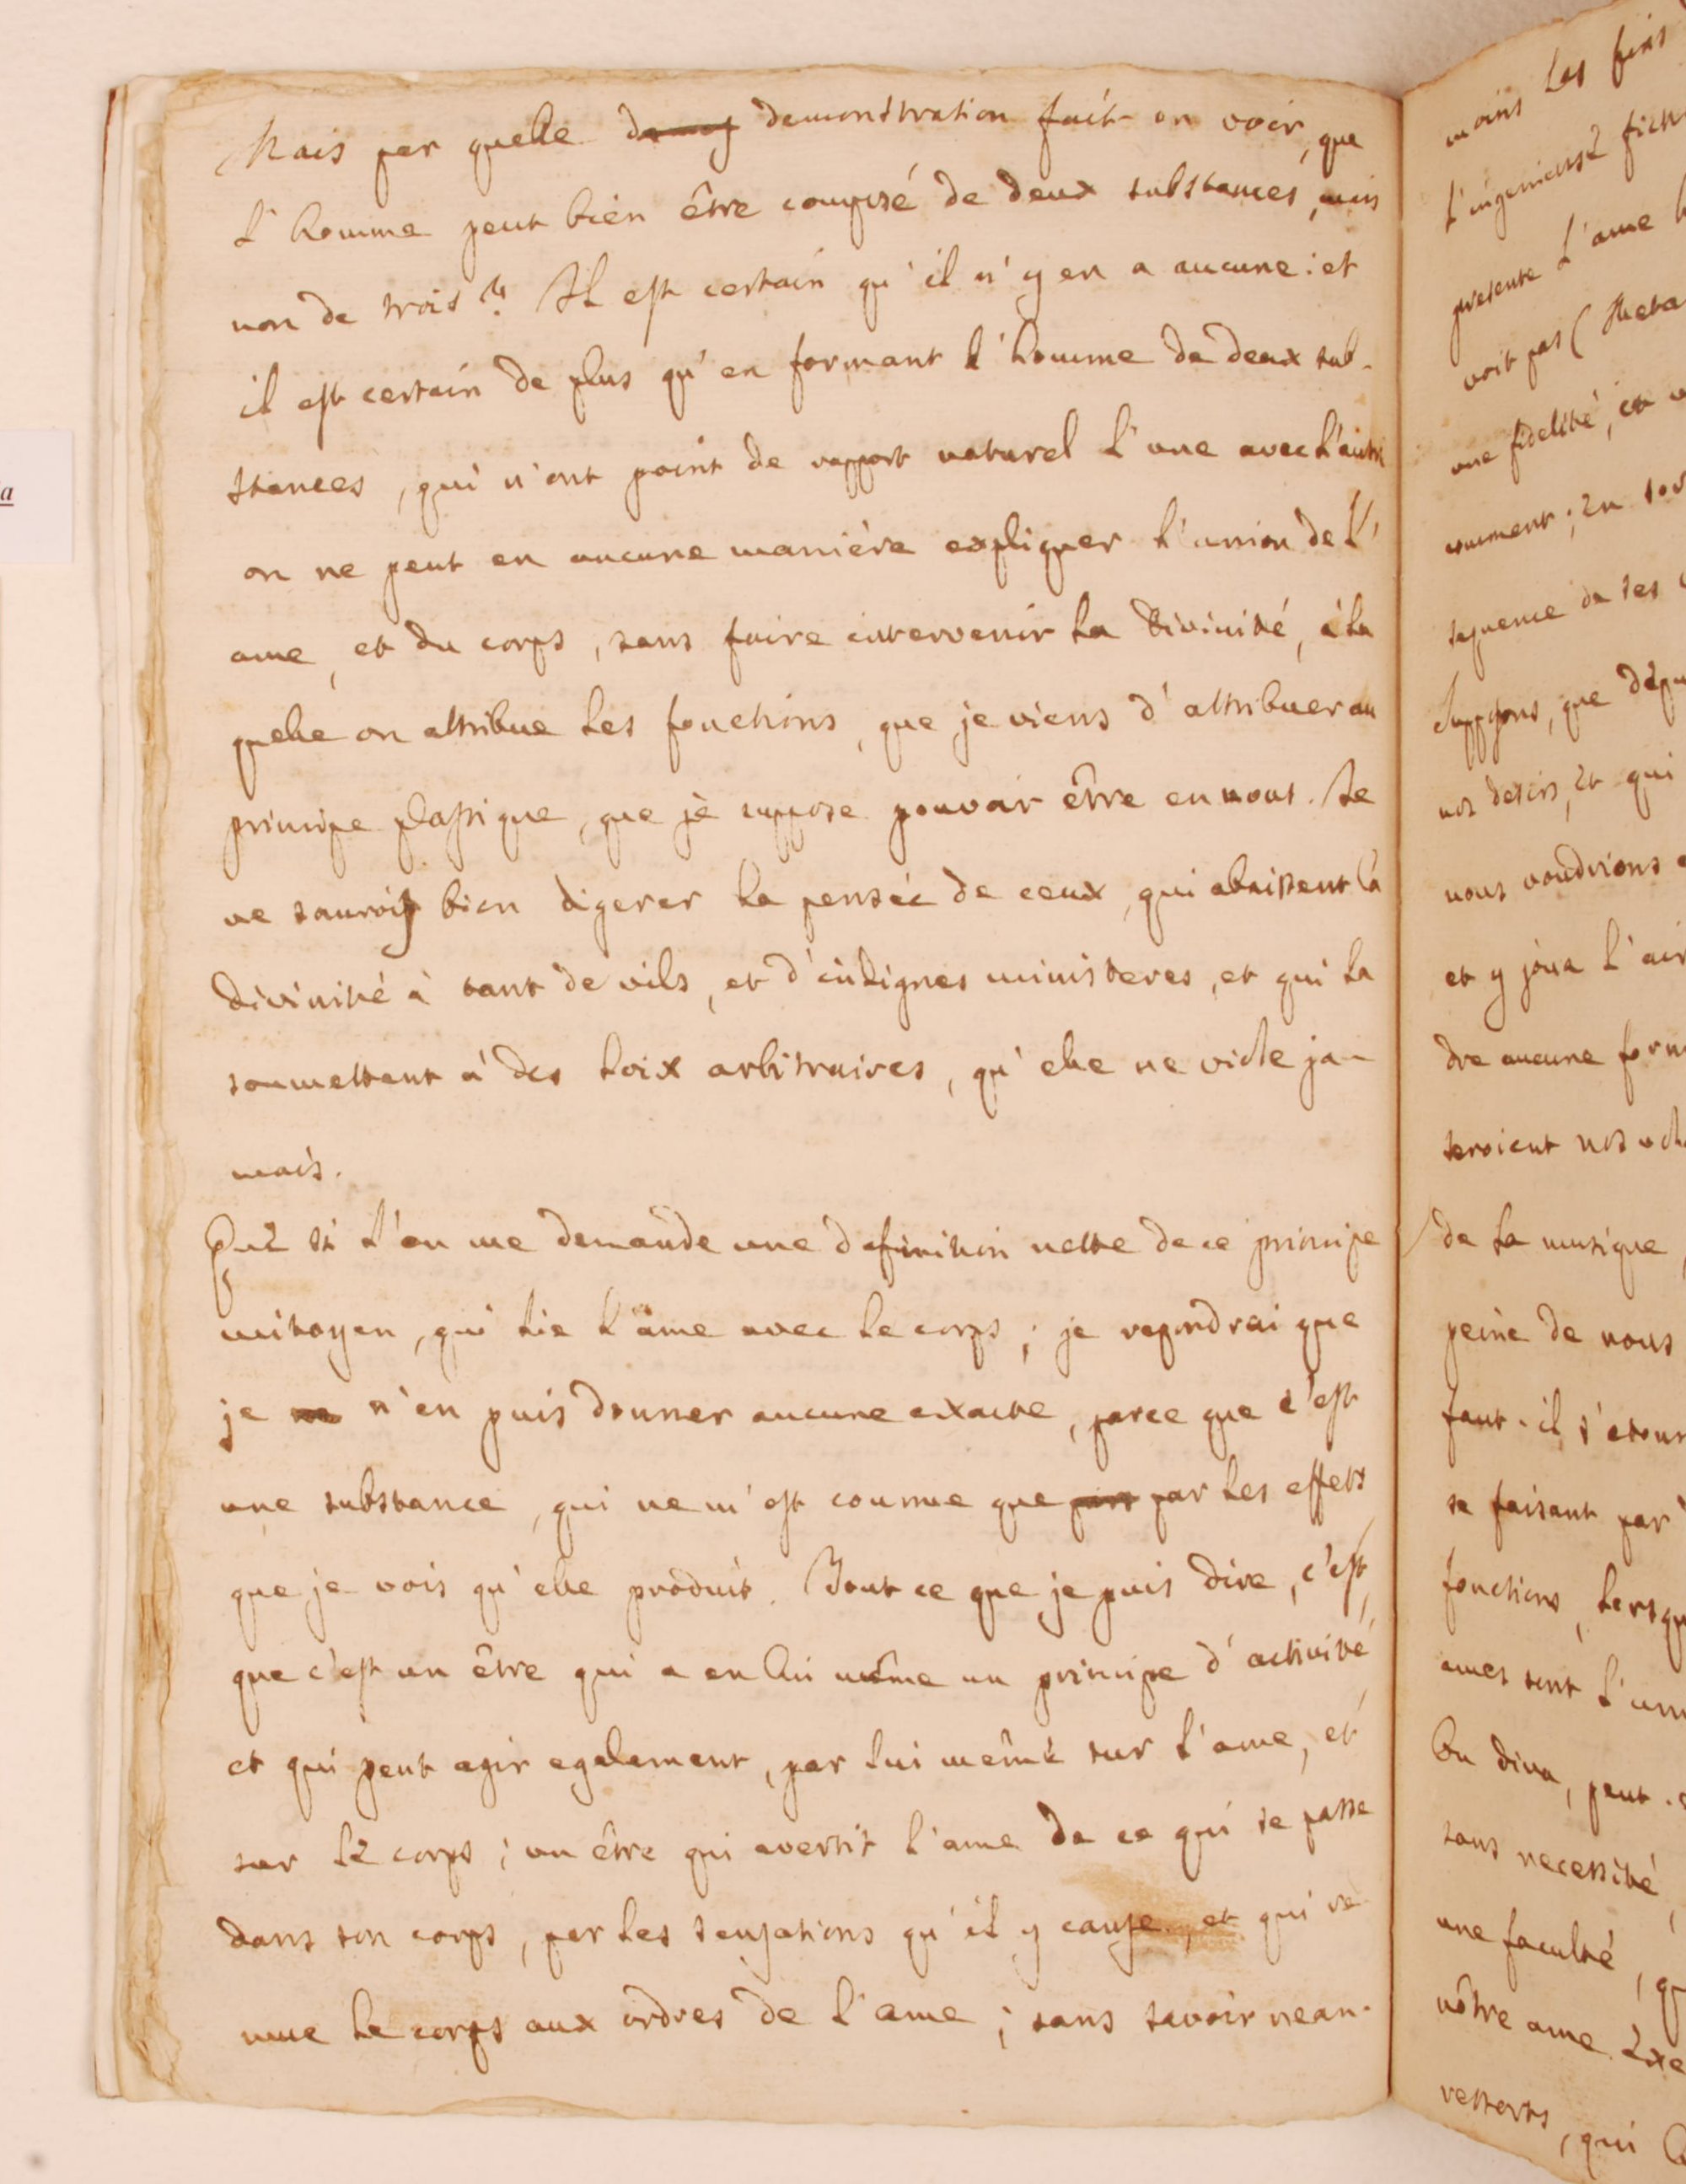 Mais par quelle demonstration fait on voir, que
l'homme peut bien être composé de deux substances, mais
non de trois? Il est certain qu'il n'y en a aucune: et
il est certain de plus qu'en formant l'homme de deux sub-
stances, qui n'ont point de rapport naturel l'une avec l'autre
on ne peut en aucune manière expliquer l'union de l'
ame, et du corps, sans faire intervenir la Divinité, à la
quelle on attribue les fonctions, que je viens d'attribuer au
principe plastique, que je suppose pouvoir être en nous. Je
ne saurois bien digerer la pensée de ceux, qui abaissent la
divinité à tant de vils, et d'indignes ministeres, et qui la
soumettent à des loix arbitraires, qu'elle ne viole ja-
mais.
Que si l'on me demande une definition nette de ce principe
mitoyen, qui lie l'ame avec le corps; je repondrai que
je n'en puis donner aucune exacte, parce que c'est
une substance, qui ne m'est connue que par les effets
que je vois qu'elle produit. Tout ce que je puis dire, c'est,
que c'est un être qui a en lui même un principe d'activité,
et qui peut agir egalement, par lui même sur l'ame, et
sur le corps; un être qui avertit l'ame de ce qui se passe
dans son corps, par les sensations qu'il y cause, et qui re
mue le corps aux ordres de l'ame; sans savoir nean-
moins les fins
l'ingenieuse
presente l'ame
voit pas (
une fidelité, et
; en
sequence de ses
Supposons, que
nos desirs, et qui
nous voudrions
et y joua l'air
dre aucune
seroient nos
de la musique
peine de nous
faut-il s'
se faisant par
fonctions,
ames sont l'
On dira, peut-
sans necessité,
une faculté,
nôtre ame
ressorts, qui